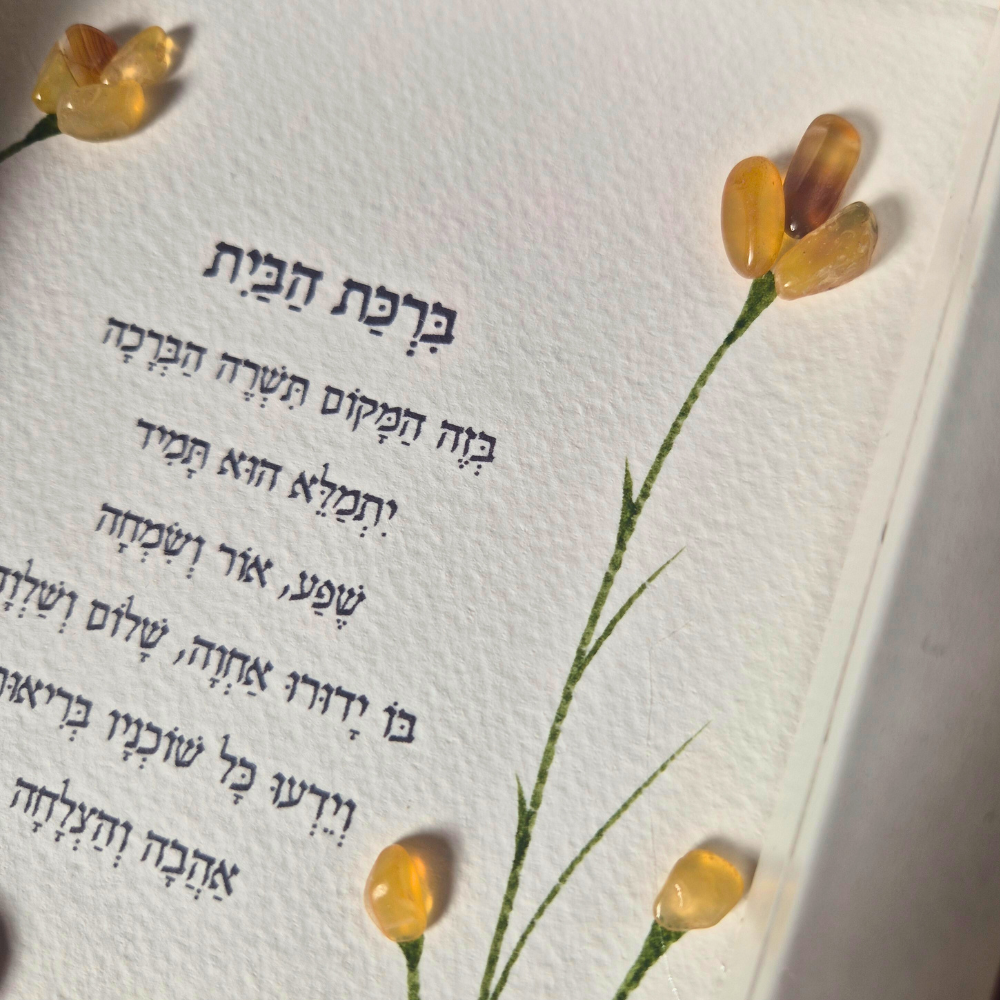 בִּרְכַּת הַבַּיִת
בְּזֶה הַמָּקוֹם תִּשְׁרֶה הַבְּרָכָה
יִתְמַלֵּא הוּא תָּמִיד
שֶׁפַע, אוֹר וְשִׂמְחָה
בּוֹ יָדוּרוּ אַחְוָה, שָׁלוֹם וְשַׁלְוָה
וְיֵדְעוּ כָּל שׁוֹכְנָיו בְּרִיאוּת
אַהֲבָה וְהַצְלָחָה